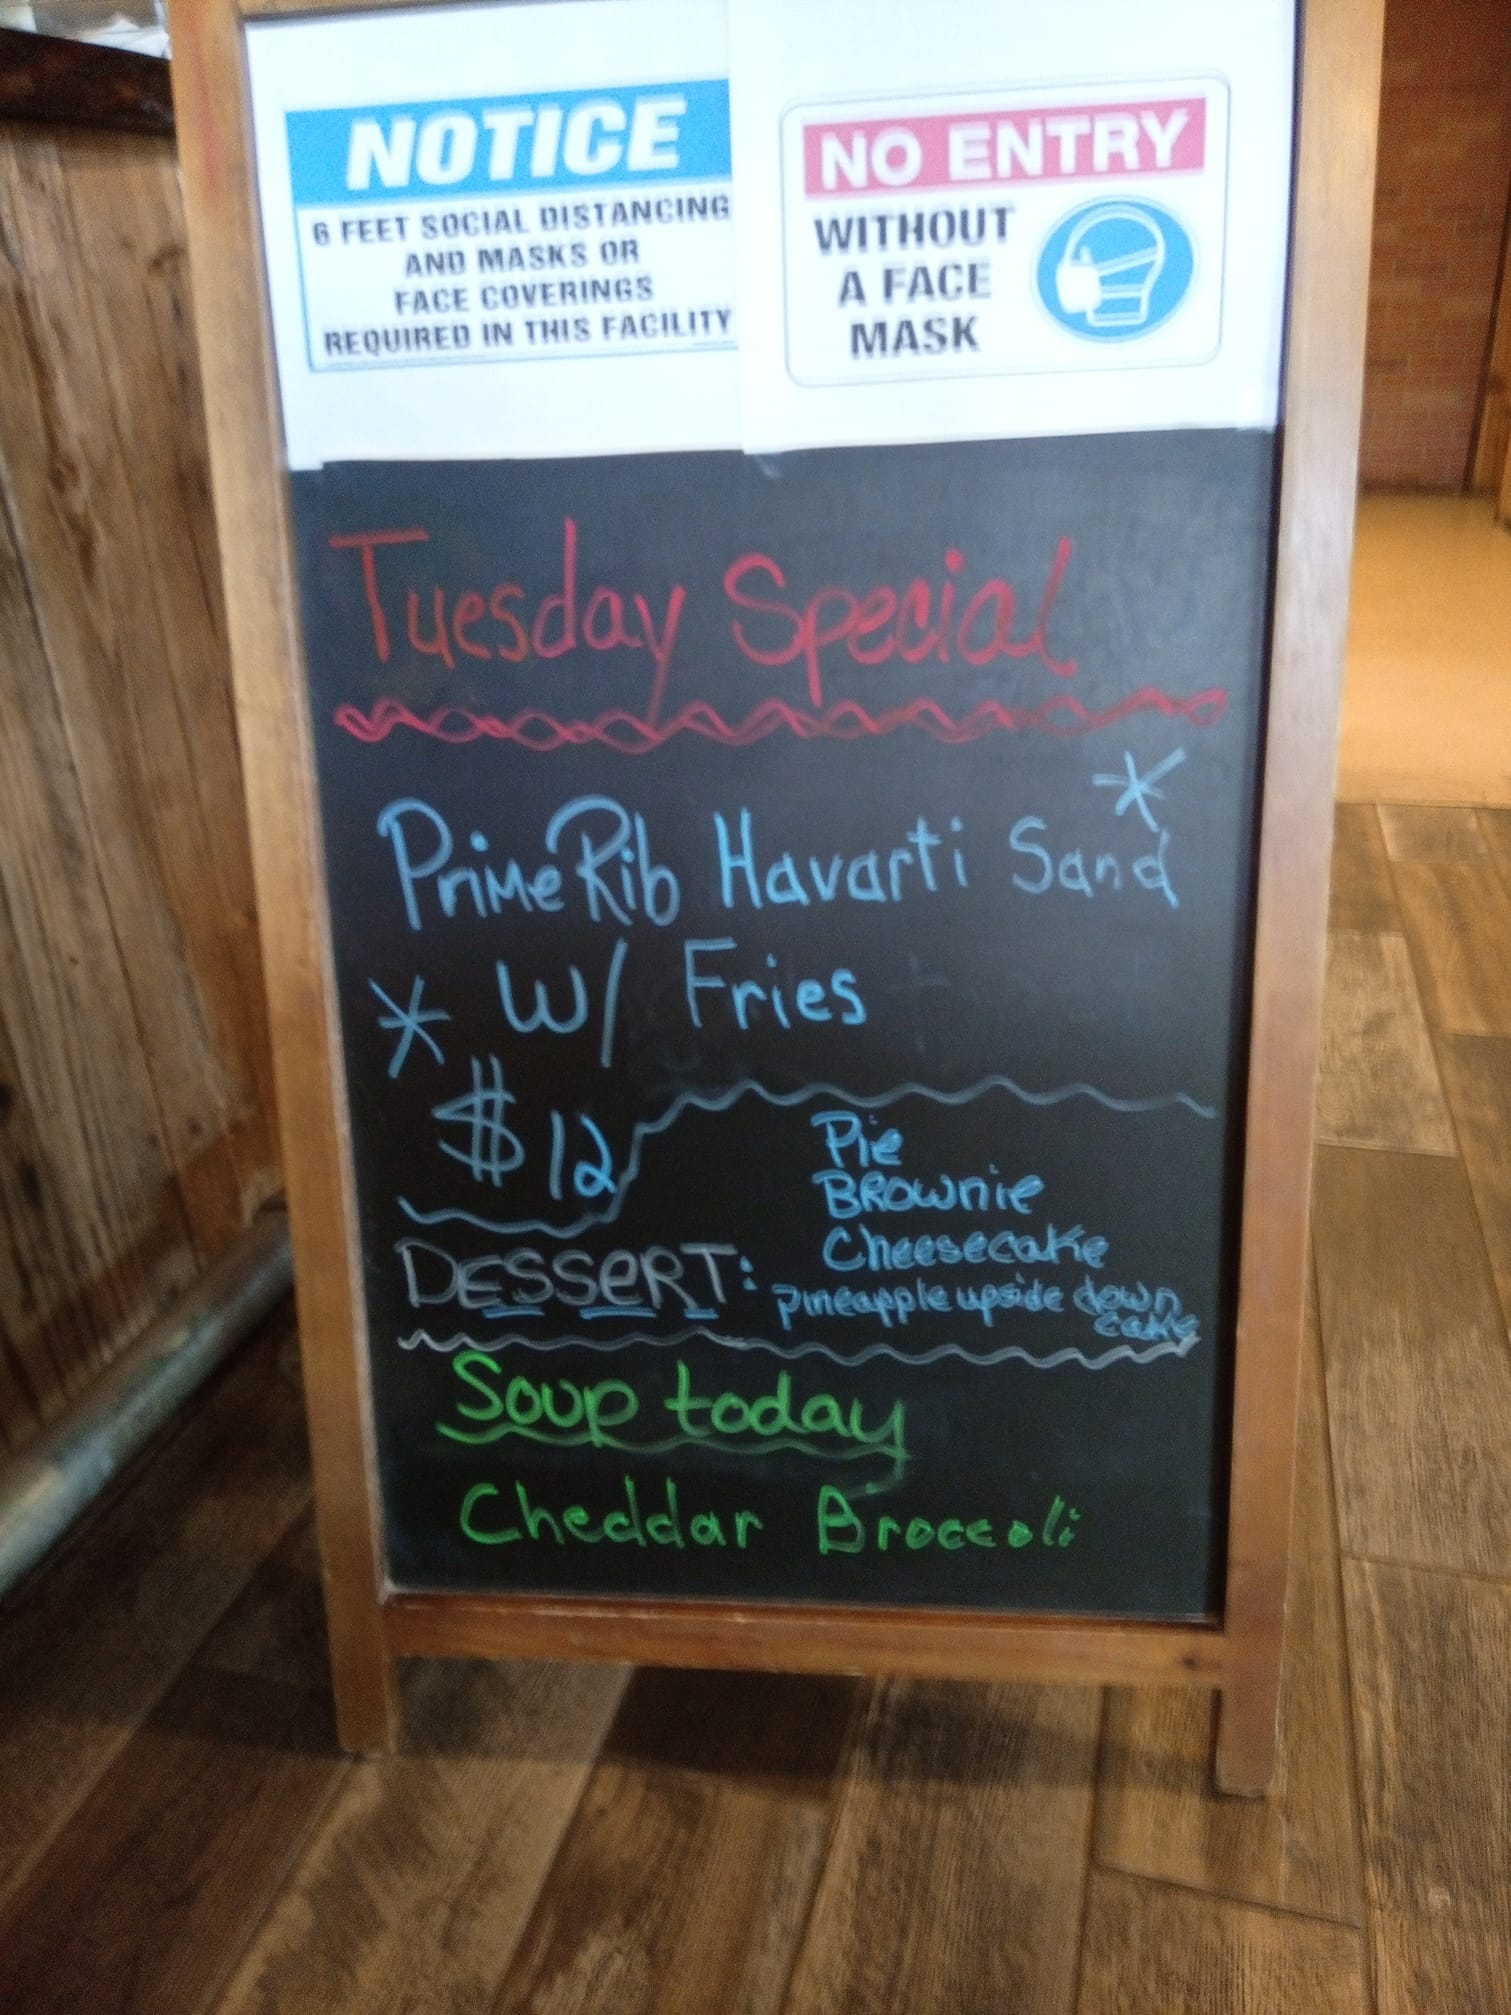 NOTICE
6 FEET SOCIAL DISTANCING
AND MASKS OR
FACE COVERINGS
REQUIRED IN THIS FACILITY
NO ENTRY
WITHOUT
A FACE
MASK
Tuesday Special
Prime Rib Havarti Sand
W/ Fries
$12
DESSERT:
Pie
BROWNIE
Cheesecake
pineapple upside down
cake
Soup today
Cheddar Broccoli